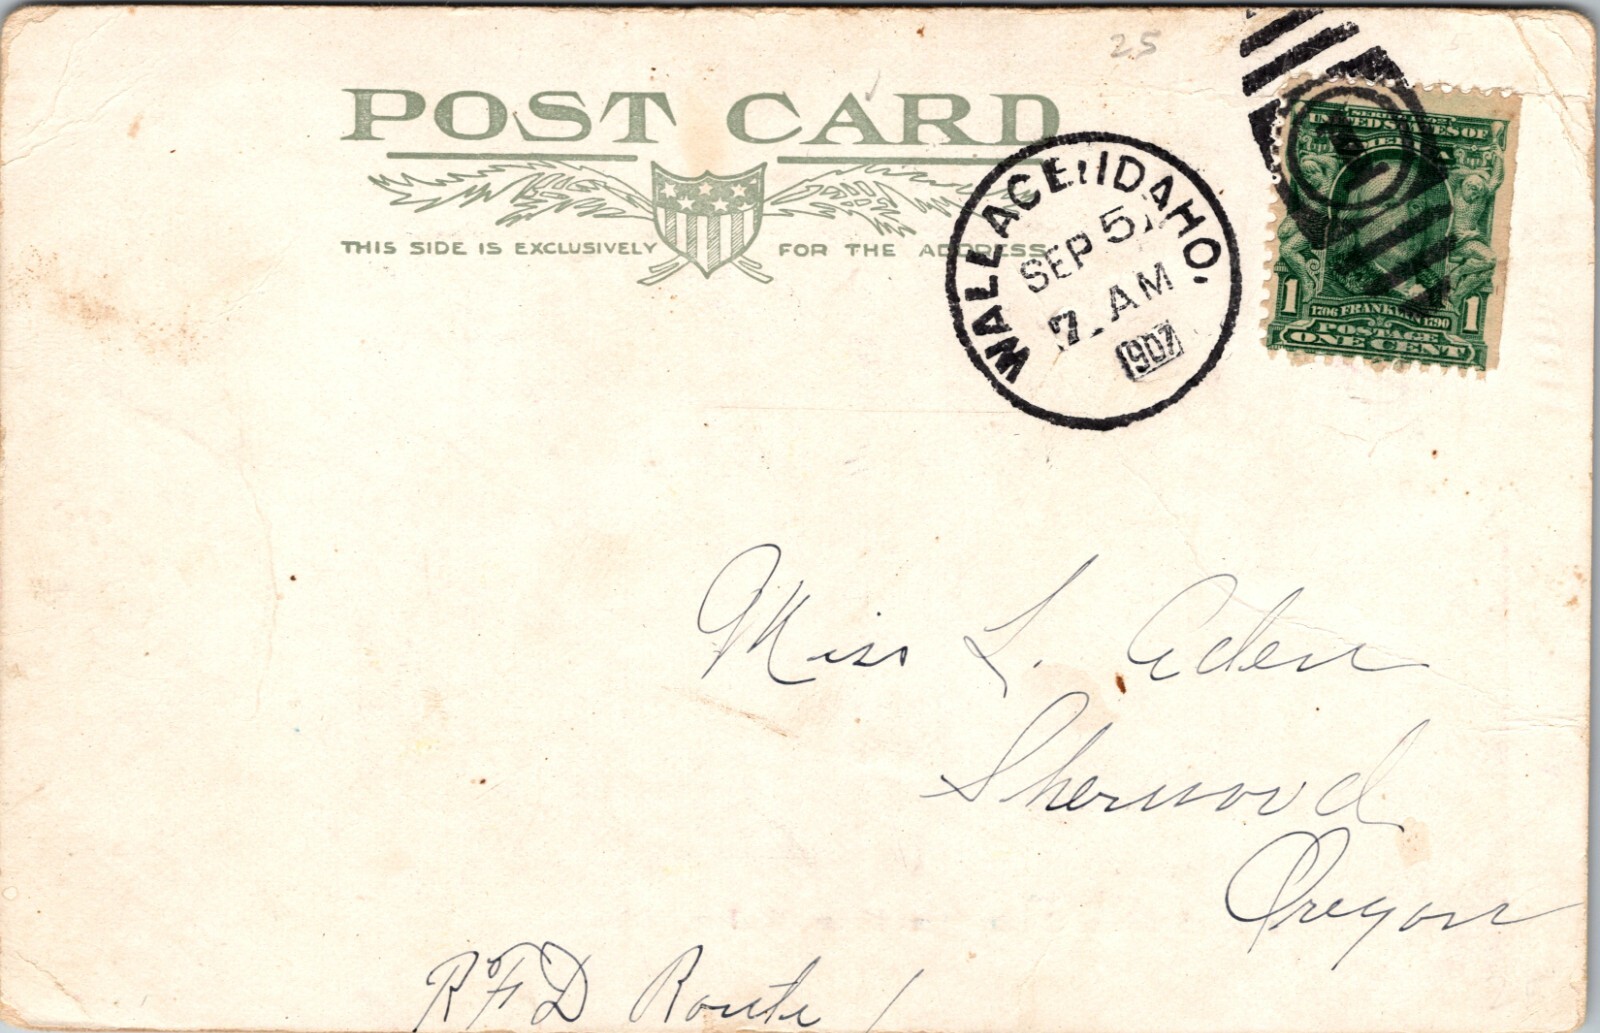 25
POST CARD
THIS SIDE IS EXCLUSIVELY FOR THE ADDRESS
WALLACE, IDAHO.
SEP 5
7 AM
1907
UNITED STATES OF
AMERICA
1 1706 FRANKLIN 1790 1
POSTAGE
ONE CENT
Miss L. Aden
Sherwood
Oregon
RFD Route 1